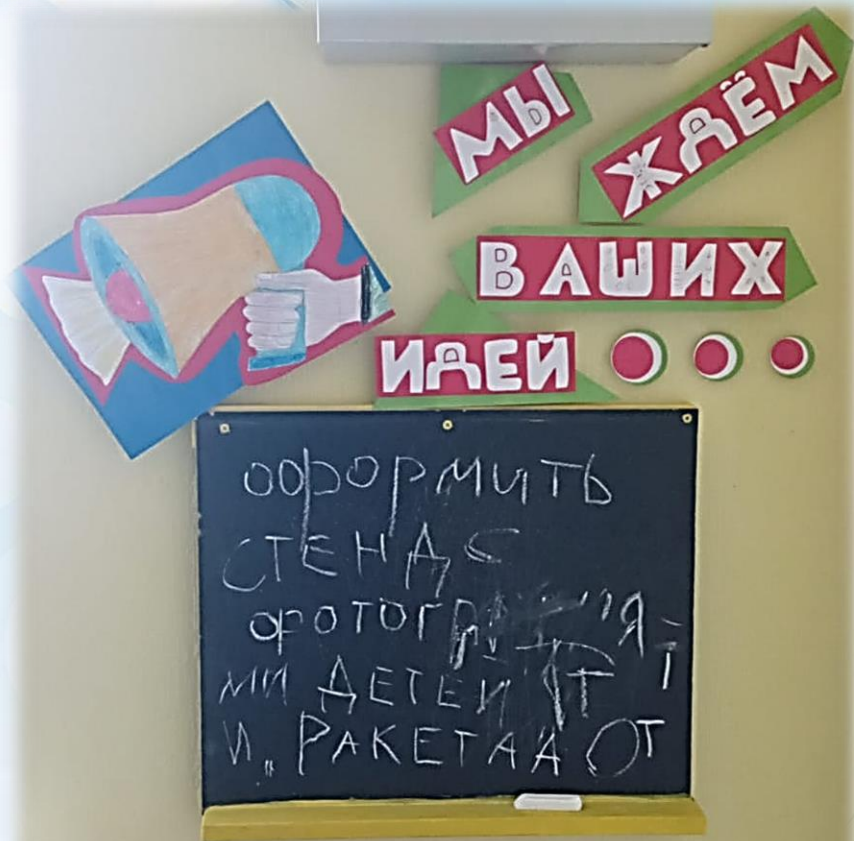 МЫ
ЖДЁМ
ВАШИХ
ИДЕЙ
ОФОРМИТЬ
СТЕНД С
МИ ДЕТЕЙ
И „РАКЕТА ОТ